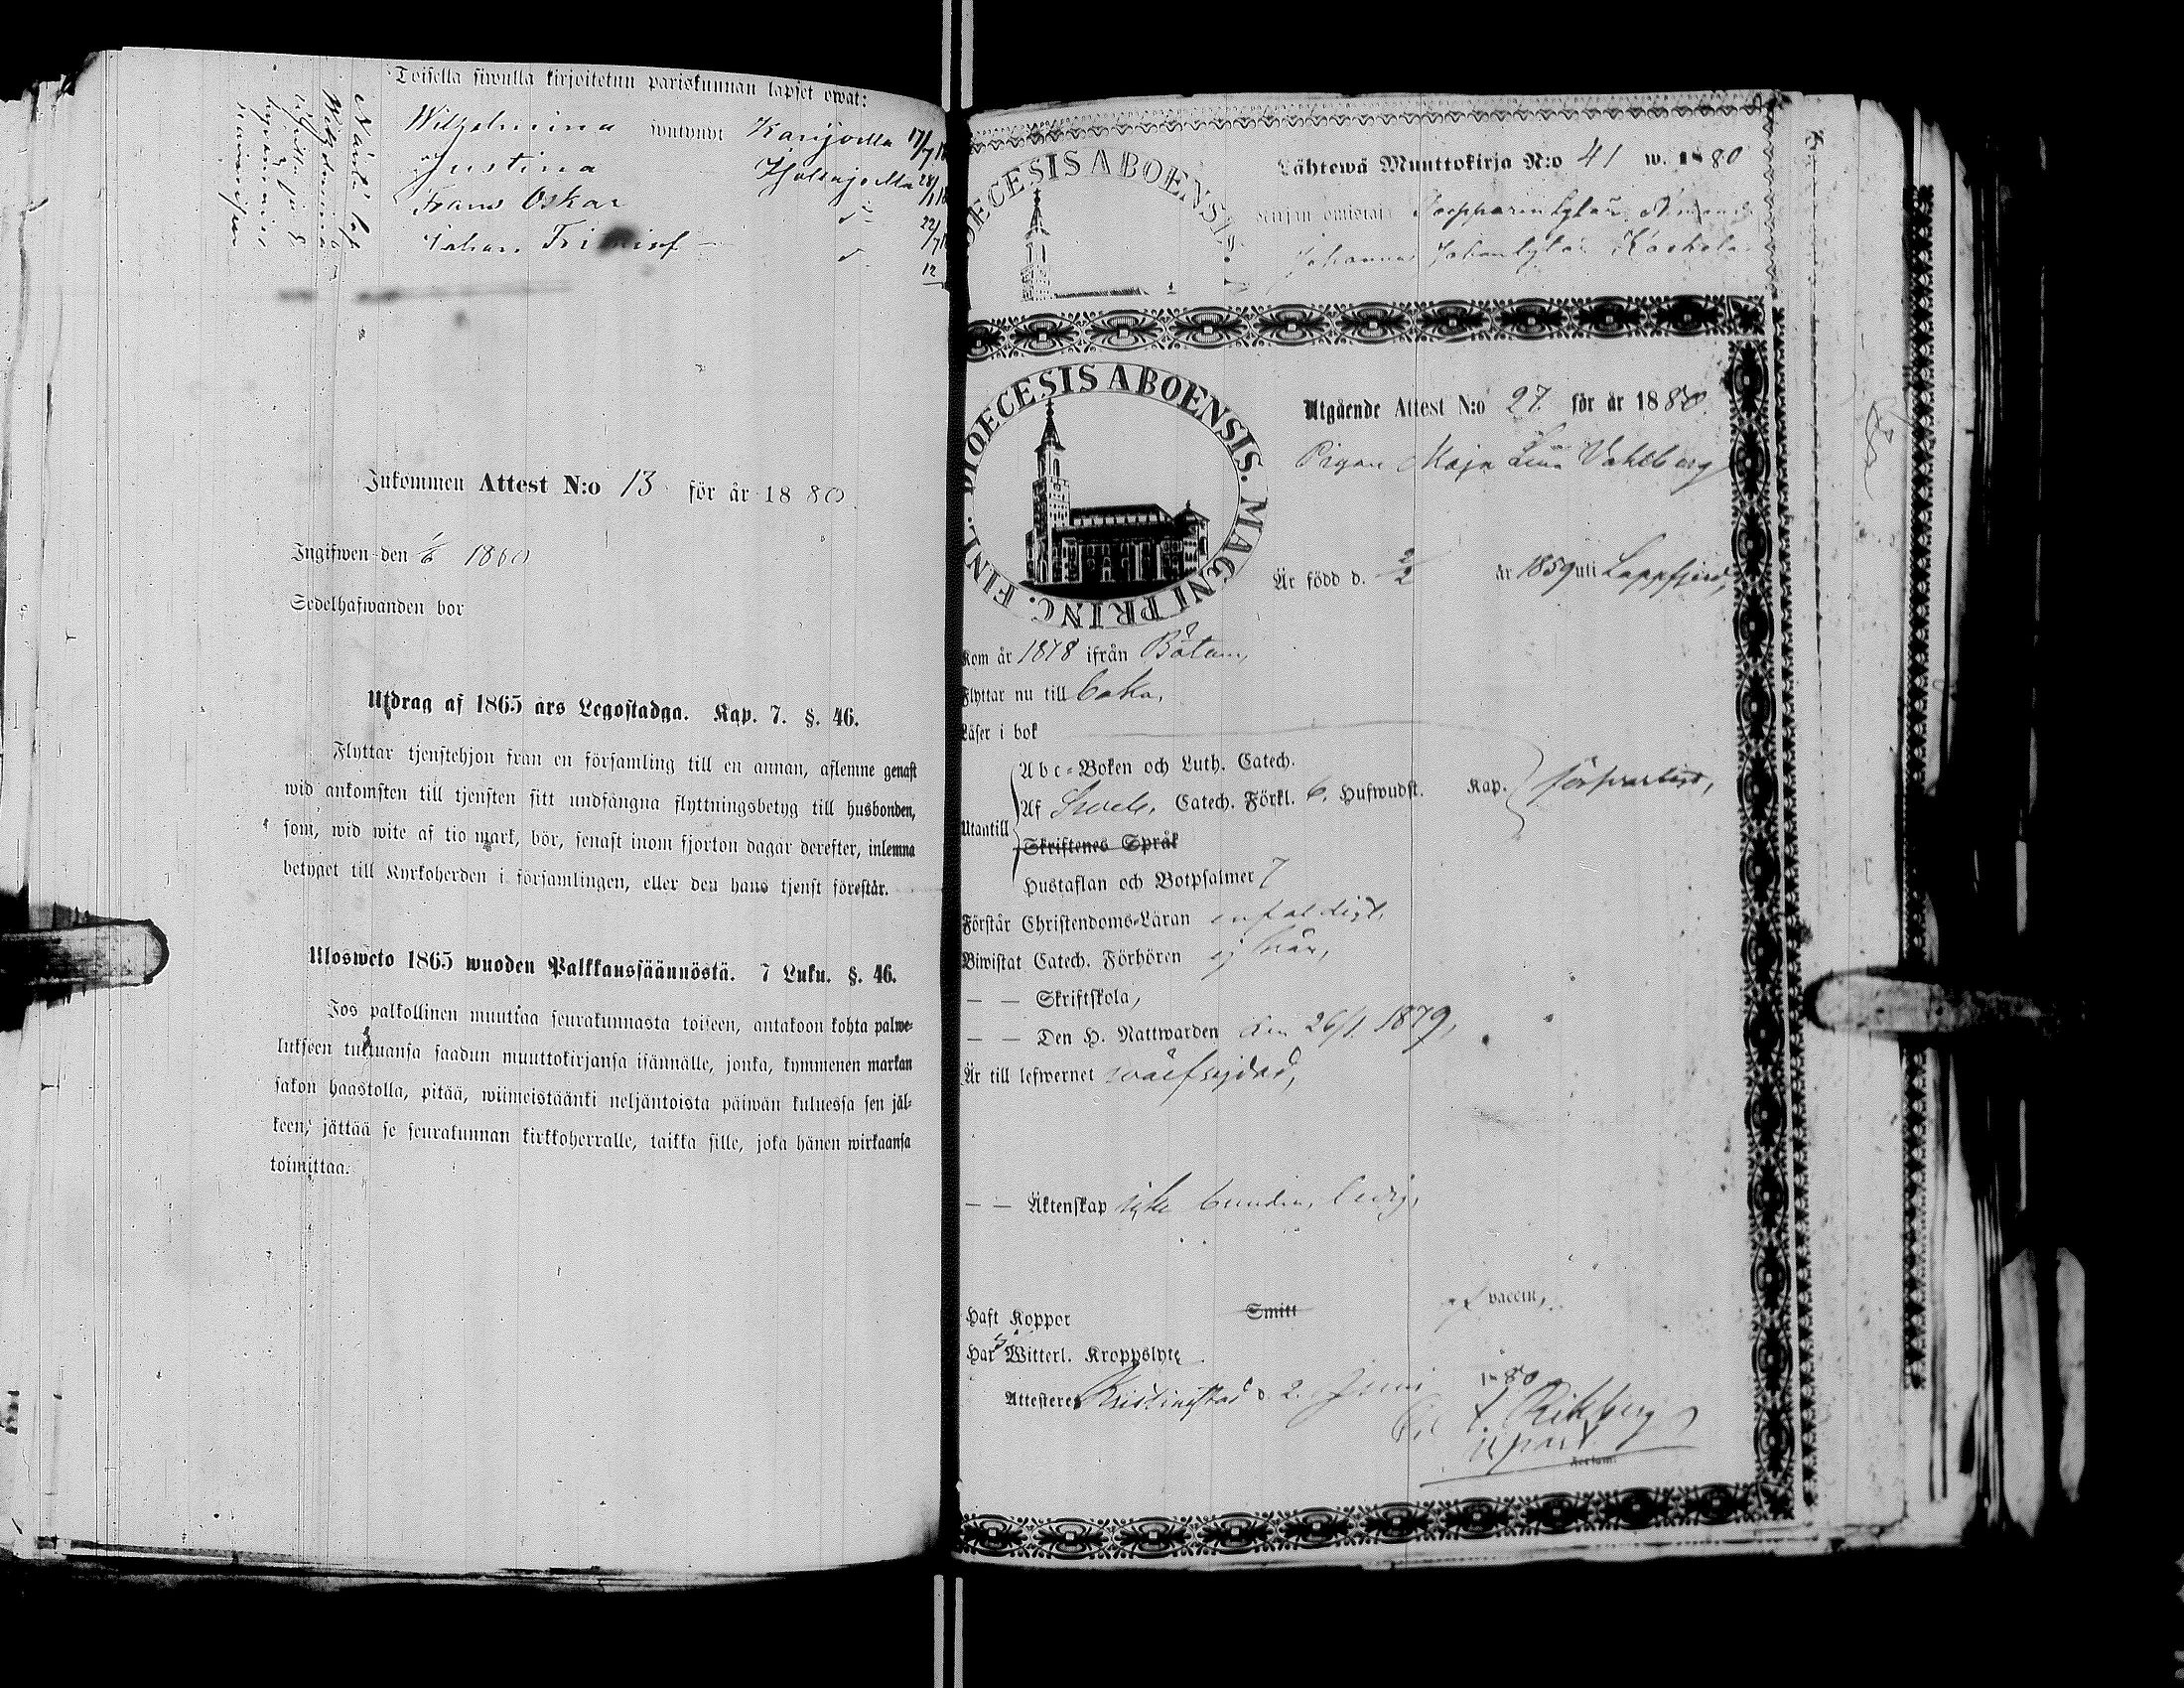 Toisella siwulla kirjoitetun pariskunnan lapset owat:
Wilhelmina syntynyt Karijoella 17/7 18
Justina Ilfolajoella 28/1 18
Frans Oskar d:o 22/7 1
Johan d:o 12
Näistä
Wilhelmina
Inkommen Attest N:o 13 för år 1880.
Ingifwen den 1/6 1880
Sedelhafwanden bor
Utdrag af 1865 års Legostadga. Kap. 7. §. 46.
Flyttar tjenstehjon från en församling till en annan, aflemne genast
wid ankomsten till tjensten sitt undfångna flyttningsbetyg till husbonden,
som, wid wite af tio mark, bör, senast inom fjorton dagar derefter, inlemna
betyget till Kyrkoherden i församlingen, eller den hans tjenst förestår.
Ulosweto 1865 wuoden Palkkaussäännöstä. 7 Luku. §. 46.
Jos palkollinen muuttaa seurakunnasta toiseen, antakoon kohta palwe-
lukseen tultuansa saadun muuttokirjansa isännälle, jonka, kymmenen markan
sakon haastolla, pitää, wiimeistäänki neljäntoista päiwän kuluessa sen jäl-
keen, jättää se seurakunnan kirkkoherralle, taikka sille, joka hänen wirkaansa
toimittaa.
DIOECESIS ABOENSIS.
Lähtewä Muuttokirja N:o 41 w. 1880
Kirjan omistaja
Johannes Koskela
DIOECESIS ABOENSIS. MAGNI PRINC. FINL.
Utgående Attest N:o 27. för år 1880.
Pigan Maja Lina Vahlberg
Är född d. 2/2 år 1859 uti Lappfjerd,
Kom år 1878 ifrån Bötom,
Flyttar nu till Ecka,
Läser i bok
Abc-Boken och Luth. Catech.
Utantill Af Sveb. Catech. Förkl. 6. Hufwudst. Kap. försvarligt,
Skriftenes Språk
Hustaflan och Botpsalmer 7
Förstår Christendoms-Läran enfaldigt,
Biwistat Catech. Förhören ej här,
— — Skriftskola,
— — Den H. Nattwarden den 26/1. 1879,
Är till lefwernet wälfrejdad,
— — Äktenskap icke bunden, ledig,
Haft Koppor Smitt af vaccin,
Har ej Witterl. Kroppslyte
Attesterer Kristinestad d. 2 Juni 1880